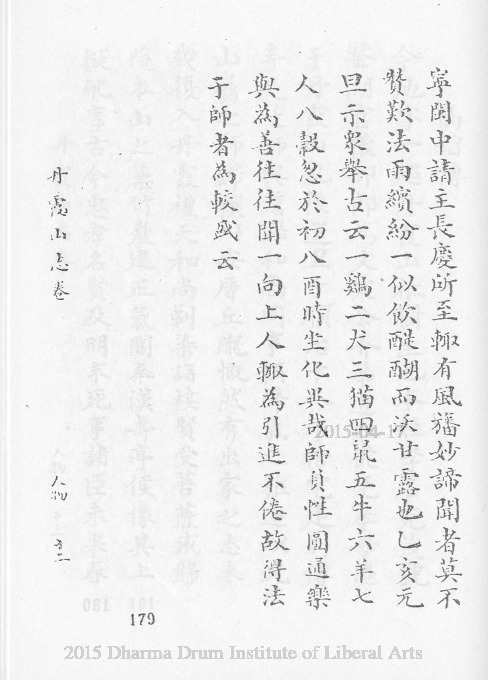 寧閩中請主長慶所至輙有風旛妙諦聞者莫不
贊歎法雨繽紛一似飲醍醐而沃甘露也乙亥元
旦示衆舉古云一鷄二犬三猫四鼠五牛六羊七
人八穀忽於初八酉時坐化異哉師負性圓通樂
與為善往往聞一向上人輙為引進不倦故得法
于師者為較盛云
丹霞山志卷
人物
179
2015-04-17
2015 Dharma Drum Institute of Liberal Arts